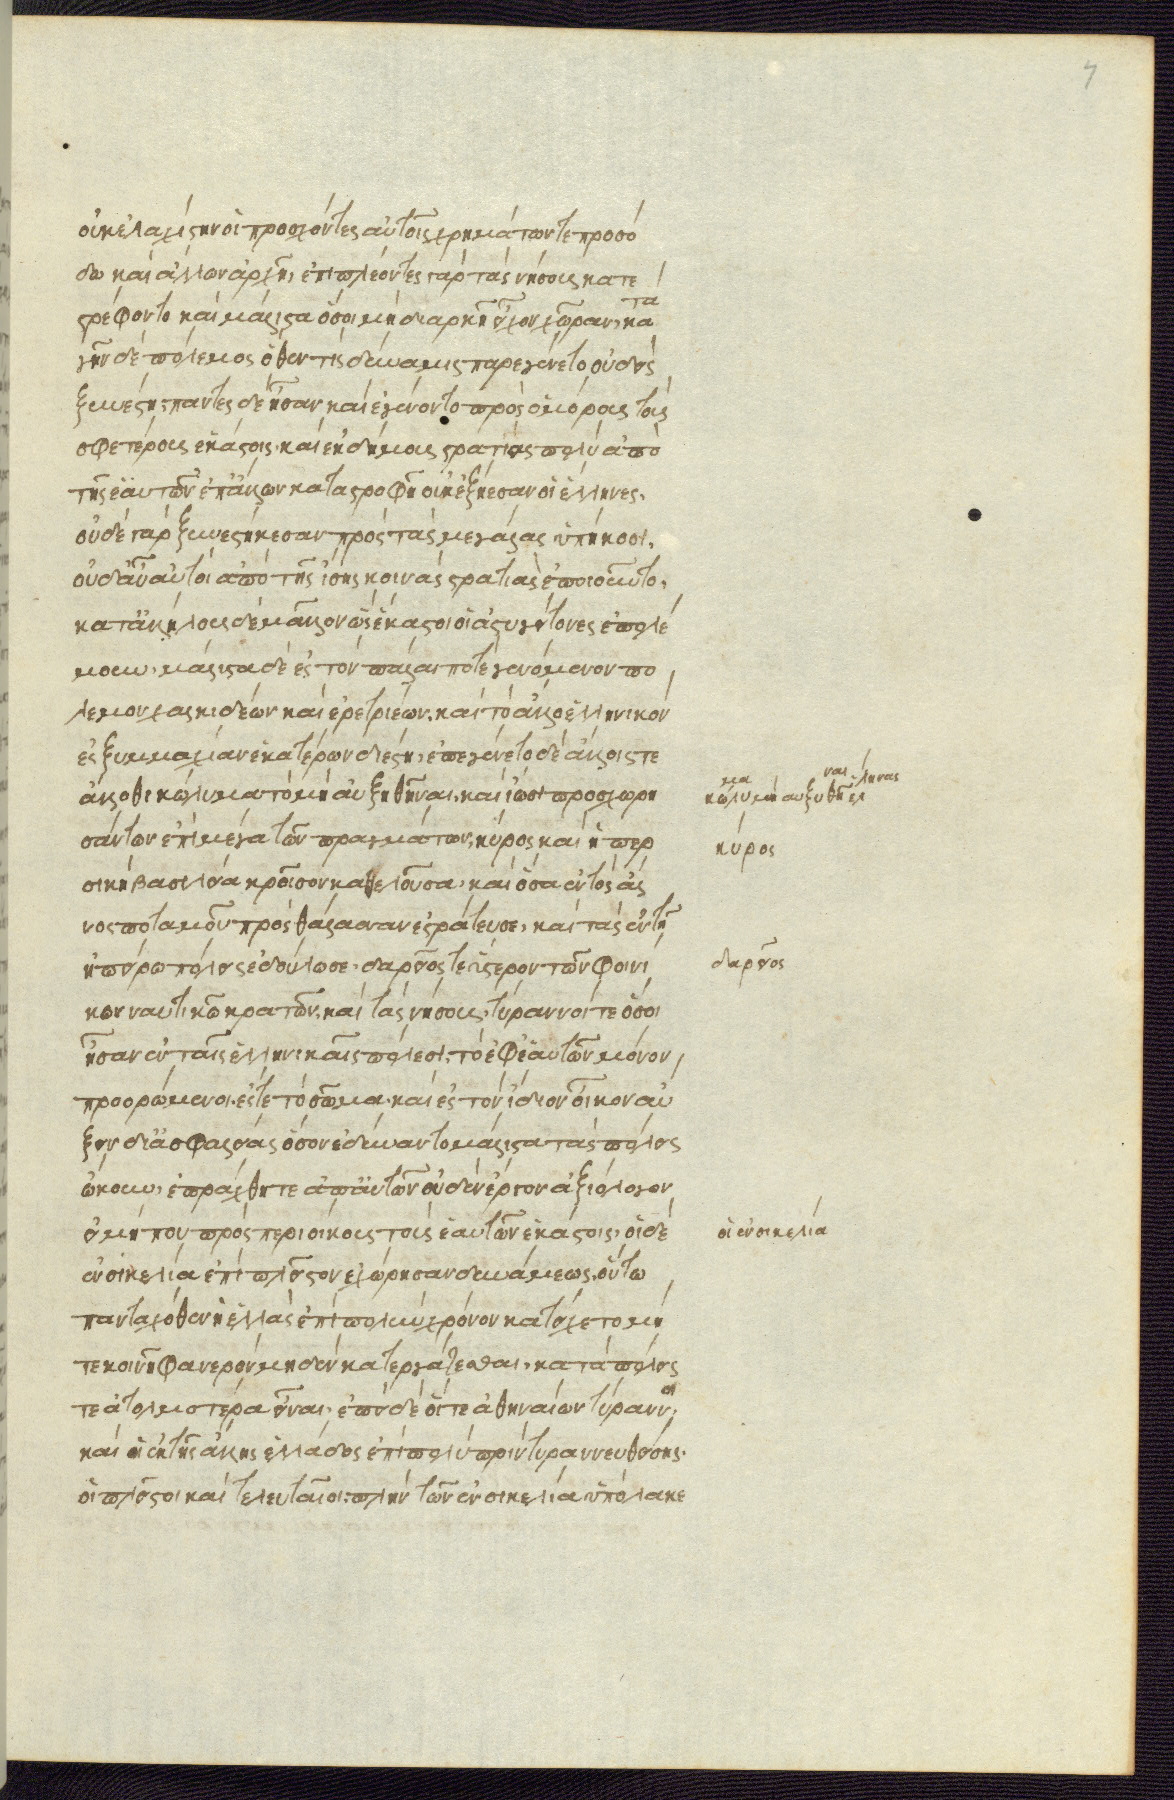 7
οὐκ ἐλαχίστην οἱ προσχόντες αὐτοῖς χρημάτων τε προσό
δω καὶ ἄλλων ἀρχῆ, ἐπιπλέοντες γὰρ τὰς νήσους κατε
στρέφοντο καὶ μάλιστα ὅσοι μὴ διαρκῆ εἶχον χώραν, κατὰ
γῆν δὲ πόλεμος ὅθεν τίς δύναμις παρεγένετο οὐδεὶς
ξυνέστη, πάντες δὲ ἦσαν καὶ ἐγένοντο πρὸς ὁμόρους τοὺς
σφετέρους ἑκάστοις. καὶ ἐκδήμους στρατίας πολὺ ἀπὸ
τῆς ἑαυτῶν ἐπ' ἄλλων καταστροφῆ οὐκ ἐξήεσαν οἱ ἕλληνες.
οὐδὲ γὰρ ξυνεστήκεσαν πρὸς τὰς μεγάλας ὑπήκοοι.
οὐδ' αὖ αὐτοὶ ἀπὸ τῆς ἴσης κοινὰς στρατιὰς ἐποιοῦντο.
κατ' ἀλλήλους δὲ μᾶλλον ὡς ἕκαστοι οἱ ἀστυγείτονες ἐπολέ
μουν. μάλιστα δὲ ἐς τὸν πάλαι ποτὲ γενόμενον πό
λεμον χαλκιδέων καὶ ἐρετριέων. καὶ τὸ ἄλλο ἑλληνικὸν
ἐς ξυμμαχίαν ἑκατέρων διέστη. ἐπεγένετο δὲ ἄλλοις τε
ἄλλοθι κωλύματα τὸ μὴ αὐξηθῆναι. καὶ ἴωσι προσχωρη
σάντων ἐπὶ μέγα τῶν πραγμάτων, κῦρος καὶ ἡ περ
σικὴ βασιλεία κροῖσον καθελοῦσα. καὶ ὅσα ἐντὸς ἅλυ
νος ποταμοῦ πρὸς θάλασσαν ἐστράτευσε. καὶ τὰς ἐν τῆ
ἠπείρω πόλεις ἐδούλωσε. δαρεῖος τε ὕστερον τῶν φοινί
κων ναυτικῶ κρατῶν, καὶ τὰς νήσους. τύραννοί τε ὅσοι
ἦσαν ἐν ταῖς ἑλληνικαῖς πόλεσι. τὸ ἐφ' ἑαυτῶν μόνον
προορώμενοι. ἔς τε τὸ σῶμα. καὶ ἐς τὸν ἴδιον οἶκον αὔ
ξειν δι' ἀσφαλείας ὅσον ἐδύναντο μάλιστα τὰς πόλεις
ὤκουν, ἐπράχθη τε ἀπ' αὐτῶν οὐδὲν ἔργον ἀξιόλογον
εἰ μή που πρὸς περιοίκους τοὺς ἑαυτῶν ἑκάστοις. οἱ δὲ
ἐν σικελία ἐπὶ πλεῖστον ἐχώρησαν δυνάμεως. οὕτω
πανταχόθεν ἡ ἑλλὰς ἐπὶ πολὺν χρόνον κατείχετο μή
τε κοινῆ φανερὸν μηδὲν κατεργάζεσθαι, κατὰ πόλεις
τε ἀτολμοτέρα εἶναι. ἐπεὶ δὲ οἵ τε ἀθηναίων τύραννοι
καὶ οἱ ἐκ τῆς ἄλλης ἑλλάδος ἐπὶ πολὺ πρὶν τυραννευθείσης.
οἱ πλεῖστοι καὶ τελευταῖοι πλὴν τῶν ἐν σικελία ὑπὸ λακε
κώλυμα μὴ αυξυθῆναι ἕλληνας
κύρος
δαρεῖος
οἱ ἐν σικελία